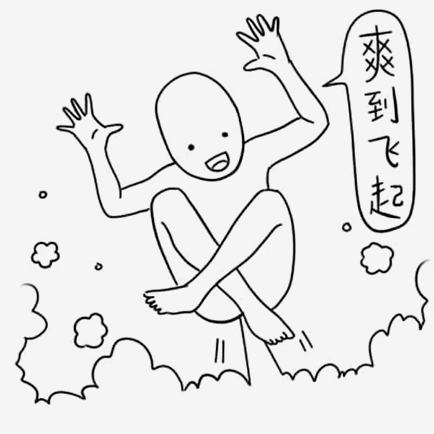 爽到飞起